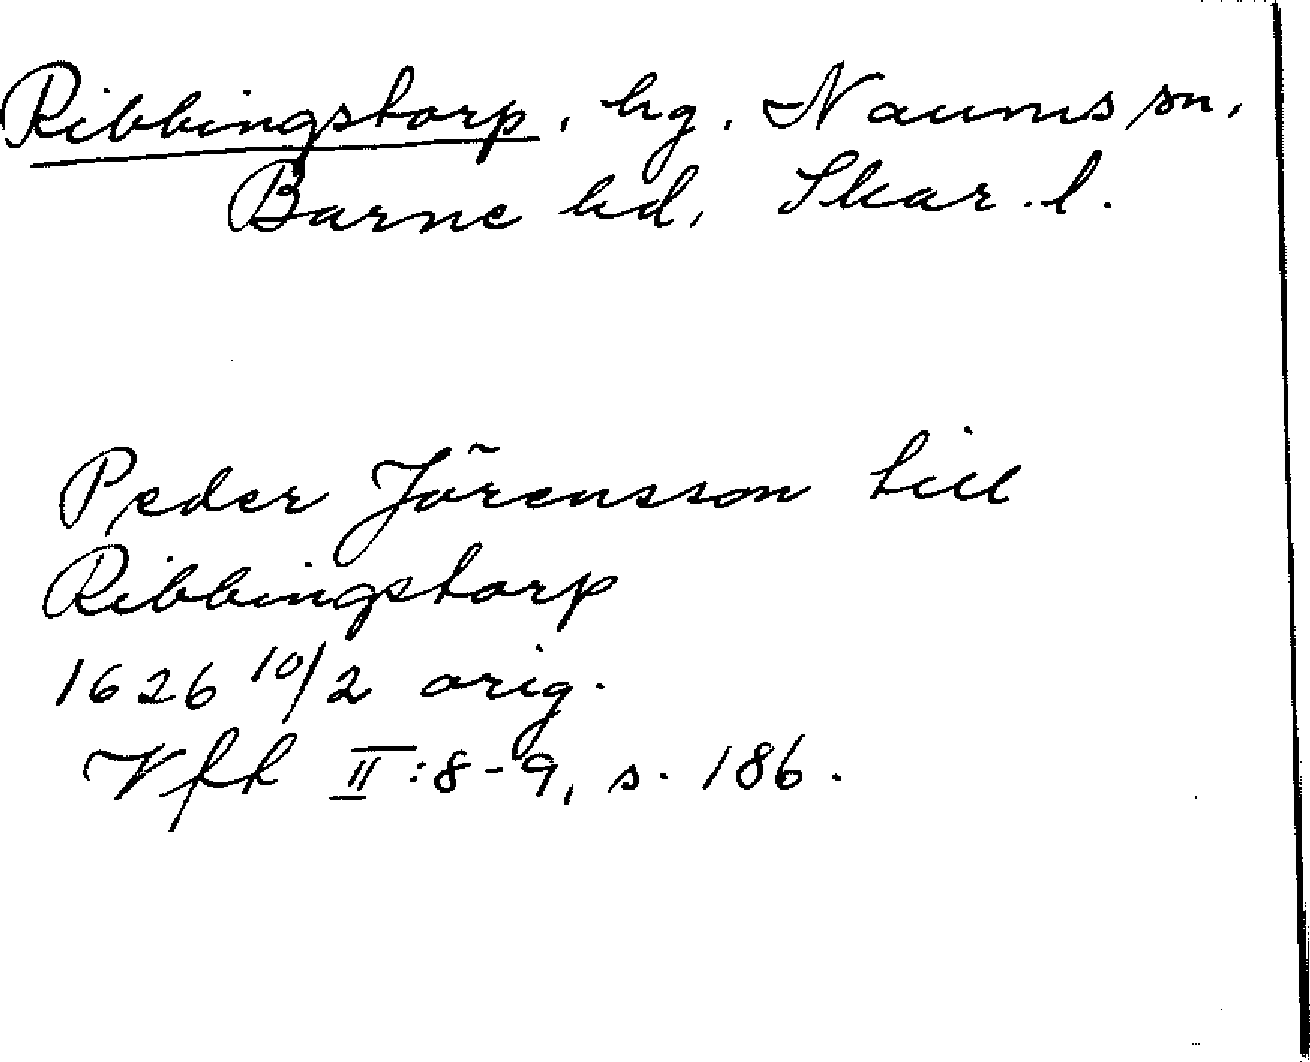 Ribbingstorp, hg. Naums sn,
Barne hd, Skar. l.
Peder Jörensson till
Ribbingstorp
1626 10/2 orig.
Vfh II:8-9, s. 186.